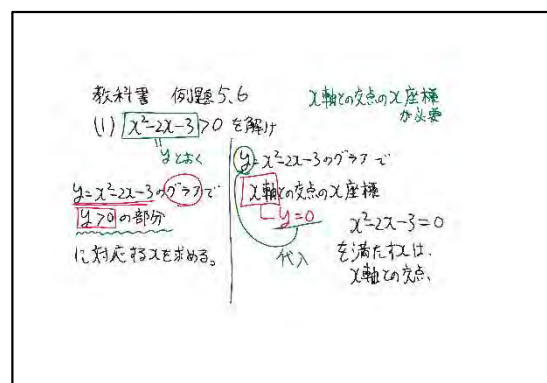 教科書 例題5、6
x軸との交点のx座標
が必要
(1) x²-2x-3>0 を解け
yとおく
y=x²-2x-3のグラフで
y>0の部分
に対応するxを求める。
y=x²-2x-3のグラフで
x軸との交点のx座標
y=0
代入
x²-2x-3=0
を満たすxは、
x軸との交点、